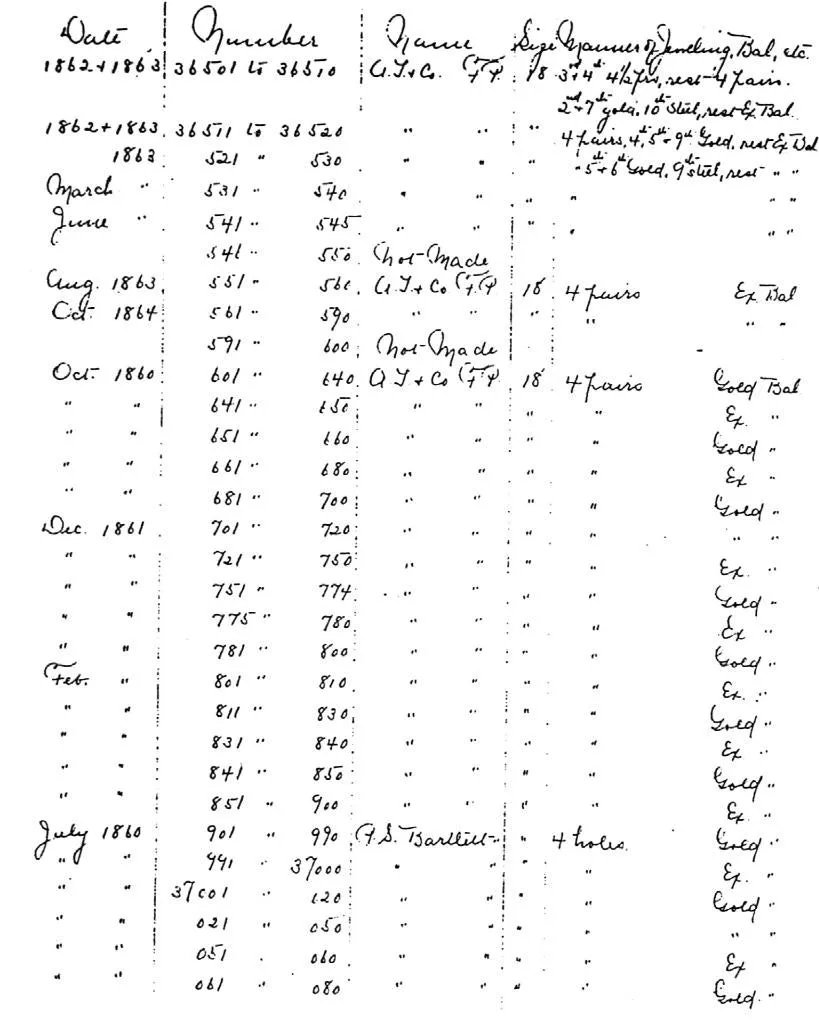 Date Number Name Size Manner of Jeweling, Bal, etc.
1862+1863 36501 to 36510 A.T.+Co. F.P. 18 3rd+4th 4½ prs, rest 4 pairs.
2nd+7th gold, 10th Steel, rest Ex Bal.
1862+1863 36511 to 36520 " " " 4 pairs, 4, 5th+9th Gold, rest Ex Bal
1863 521 " 530 " " " " 5th+6th Gold, 9th steel, rest " "
March " 531 " 540 " " " " " "
June " 541 " 545 " " " " " "
546 " 550 Not Made
Aug. 1863 551 " 560 A.T.+Co F.P. 18 4 pairs Ex Bal
Oct. 1864 561 " 590 " " " " " "
591 " 600 Not Made -
Oct. 1860 601 " 640 A T+Co F.P. 18 4 pairs Gold Bal
" " 641 " 650 " " " " Ex. "
" " 651 " 660 " " " " Gold "
" " 661 " 680 " " " " Ex "
" " 681 " 700 " " " " Gold "
Dec. 1861 701 " 720 " " " " " "
" " 721 " 750 " " " " Ex. "
" " 751 " 774 " " " " Gold "
" " 775 " 780 " " " " Ex "
" " 781 " 800 " " " " Gold "
Feb. " 801 " 810 " " " " Ex. "
" " 811 " 830 " " " " Gold "
" " 831 " 840 " " " " Ex "
" " 841 " 850 " " " " Gold "
" " 851 " 900 " " " " Ex. "
July 1860 901 " 990 P.S. Bartlett " 4 holes. Gold "
" " 991 " 37000 " " " " Ex. "
" " 37001 " 020 " " " " Gold "
" " 021 " 050 " " " " " "
" " 051 " 060 " " " " Ex "
" " 061 " 080 " " " " Gold "